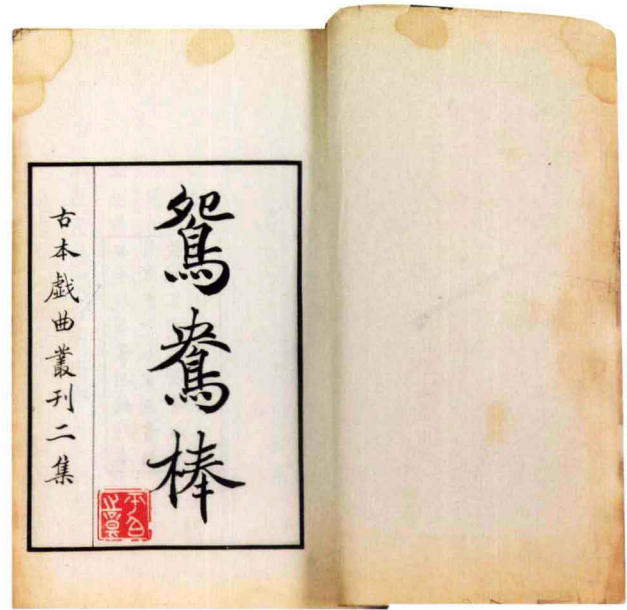 鴛鴦棒
古本戲曲叢刊二集